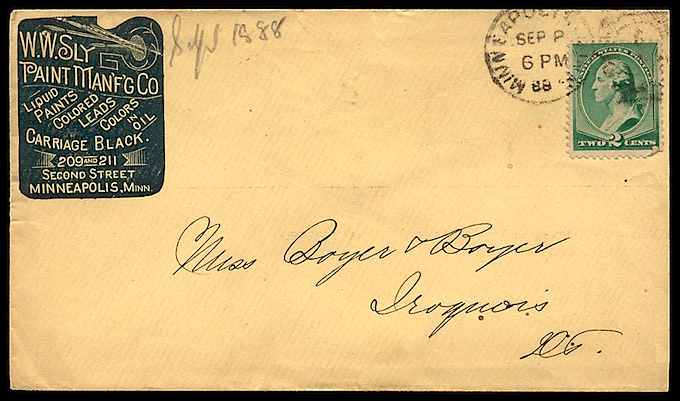 W.W. SLY
PAINT MAN'F'G CO
LIQUID
PAINTS
COLORED
LEADS
COLORS
IN
OIL
CARRIAGE BLACK.
209 AND 211
SECOND STREET
MINNEAPOLIS, MINN.
Sept 1888
MINNEAPOLIS
SEP 2
6 PM
88
UNITED STATES POSTAGE
TWO 2 CENTS
Miss Boyer & Boyer
Iroquois
DT.